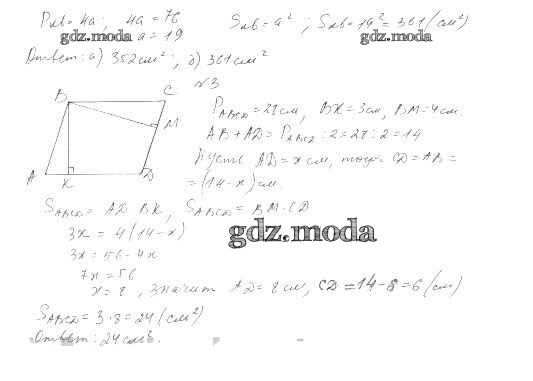 Pкв = 4a; 4a = 76
a = 19
Sкв = a²; Sкв = 19² = 361 (см²)
gdz.moda
gdz.moda
Ответ: а) 352 см²; б) 361 см²
N3
B C
M
A K D
P_ABCD = 28 см, BK = 3 см, BM = 4 см.
AB + AD = P_ABCD : 2 = 28 : 2 = 14
Пусть AD = x см, тогда CD = AB =
= (14 - x) см.
S_ABCD = AD · BK, S_ABCD = BM · CD
3x = 4(14 - x)
gdz.moda
3x = 56 - 4x
7x = 56
x = 8, значит AD = 8 см, CD = 14 - 8 = 6 (см)
S_ABCD = 3 · 8 = 24 (см²)
Ответ: 24 см².